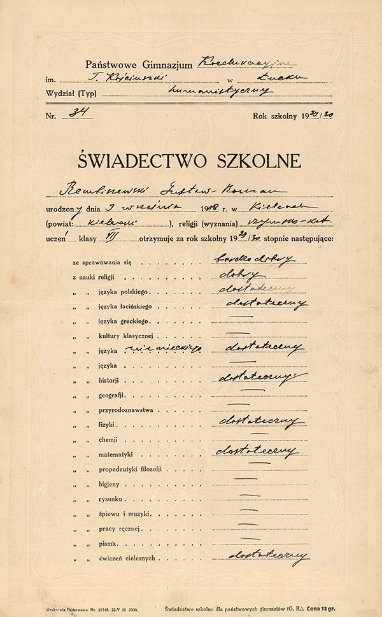 Państwowe Gimnazjum Koedukacyjne
im. T. Kościuszki w Łucku
Wydział (Typ) humanistyczny
Nr. 34 Rok szkolny 1929/30
ŚWIADECTWO SZKOLNE
Gustaw-Roman
urodzony dnia 3 września 19 r. w Kielcach
(powiat: kielecki ), religii (wyznania) rzymsko-kat
uczeń klasy VI otrzymuje za rok szkolny 1929/30 stopnie następujące:
ze sprawowania się bardzo dobry
z nauki religji dobry
„ „ języka polskiego dostateczny
„ „ języka łacińskiego dostateczny
„ „ języka greckiego —
„ „ kultury klasycznej —
„ „ języka niemieckiego dostateczny
„ „ języka —
„ „ historji dostateczny
„ „ geografji —
„ „ przyrodoznawstwa —
„ „ fizyki dostateczny
„ „ chemji —
„ „ matematyki dostateczny
„ „ propedeutyki filozofji —
„ „ higjeny —
„ „ rysunku —
„ „ śpiewu i muzyki —
„ „ pracy ręcznej —
„ „ pisma —
„ „ ćwiczeń cielesnych dostateczny
Świadectwo szkolne dla państwowych gimnazjów (G. B.) Cena 13 gr.